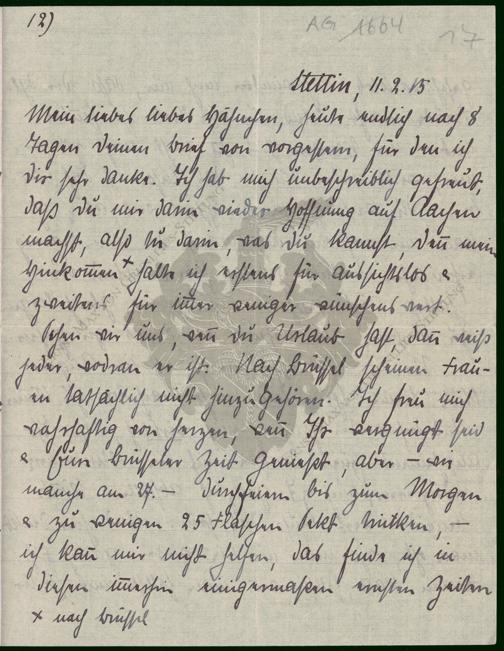 12)
AG 1664
17
Stettin, 11.2.15
Mein liebes liebes Hähnchen, heute endlich nach 8
Tagen Deinen Brief von vorgestern, für den ich
Dir sehr danke. Ich hab mich unbeschreiblich gefreut,
daß Du mir darin wieder Hoffnung auf Aachen
machst, also tu darin, was Du kannst, denn mein
Hinkommen x halte ich erstens für aussichtslos &
zweitens für immer weniger wünschenswert.
Sehen wir uns, wenn Du Urlaub hast, dann weiß
jeder, wodran er ist. Nach Brüssel scheinen Frau-
en tatsächlich nicht hinzugehören. Ich freu mich
wahrhaftig von Herzen, wenn Ihr vergnügt seid
& Eure Brüsseler Zeit genießt, aber – wie
manche am 27. – durchfeiern bis zum Morgen
& zu wenigen 25 Flaschen Sekt trinken, –
ich kann mir nicht helfen, das finde ich in
diesen immerhin einigermaßen ernsten Zeiten
x nach Brüssel